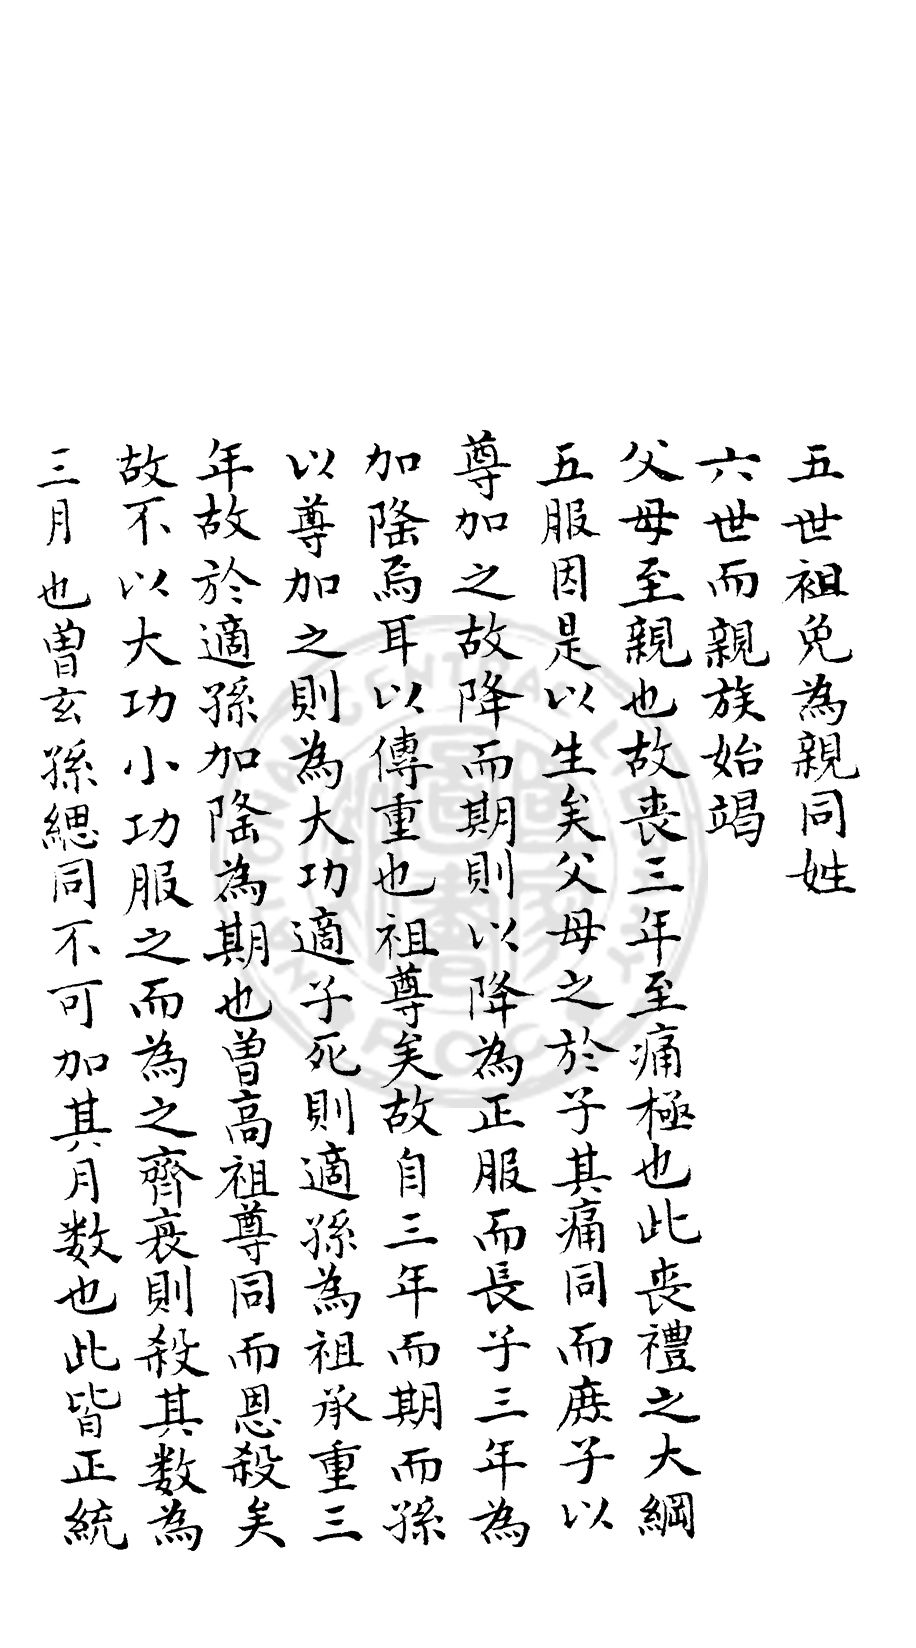 五世袒免為親同姓
六世而親族始竭
父母至親也故喪三年至痛極也此喪禮之大綱
五服因是以生矣父母之於子其痛同而庶子以
尊加之故降而期則以降為正服而長子三年為
加隆焉耳以傳重也祖尊矣故自三年而期而孫
以尊加之則為大功適子死則適孫為祖承重三
年故於適孫加隆為期也曾高祖尊同而恩殺矣
故不以大功小功服之而為之齊衰則殺其數為
三月也曾玄孫緦同不可加其月数也此皆正統
NATIONAL CENTRAL LIBRARY R.O.C.